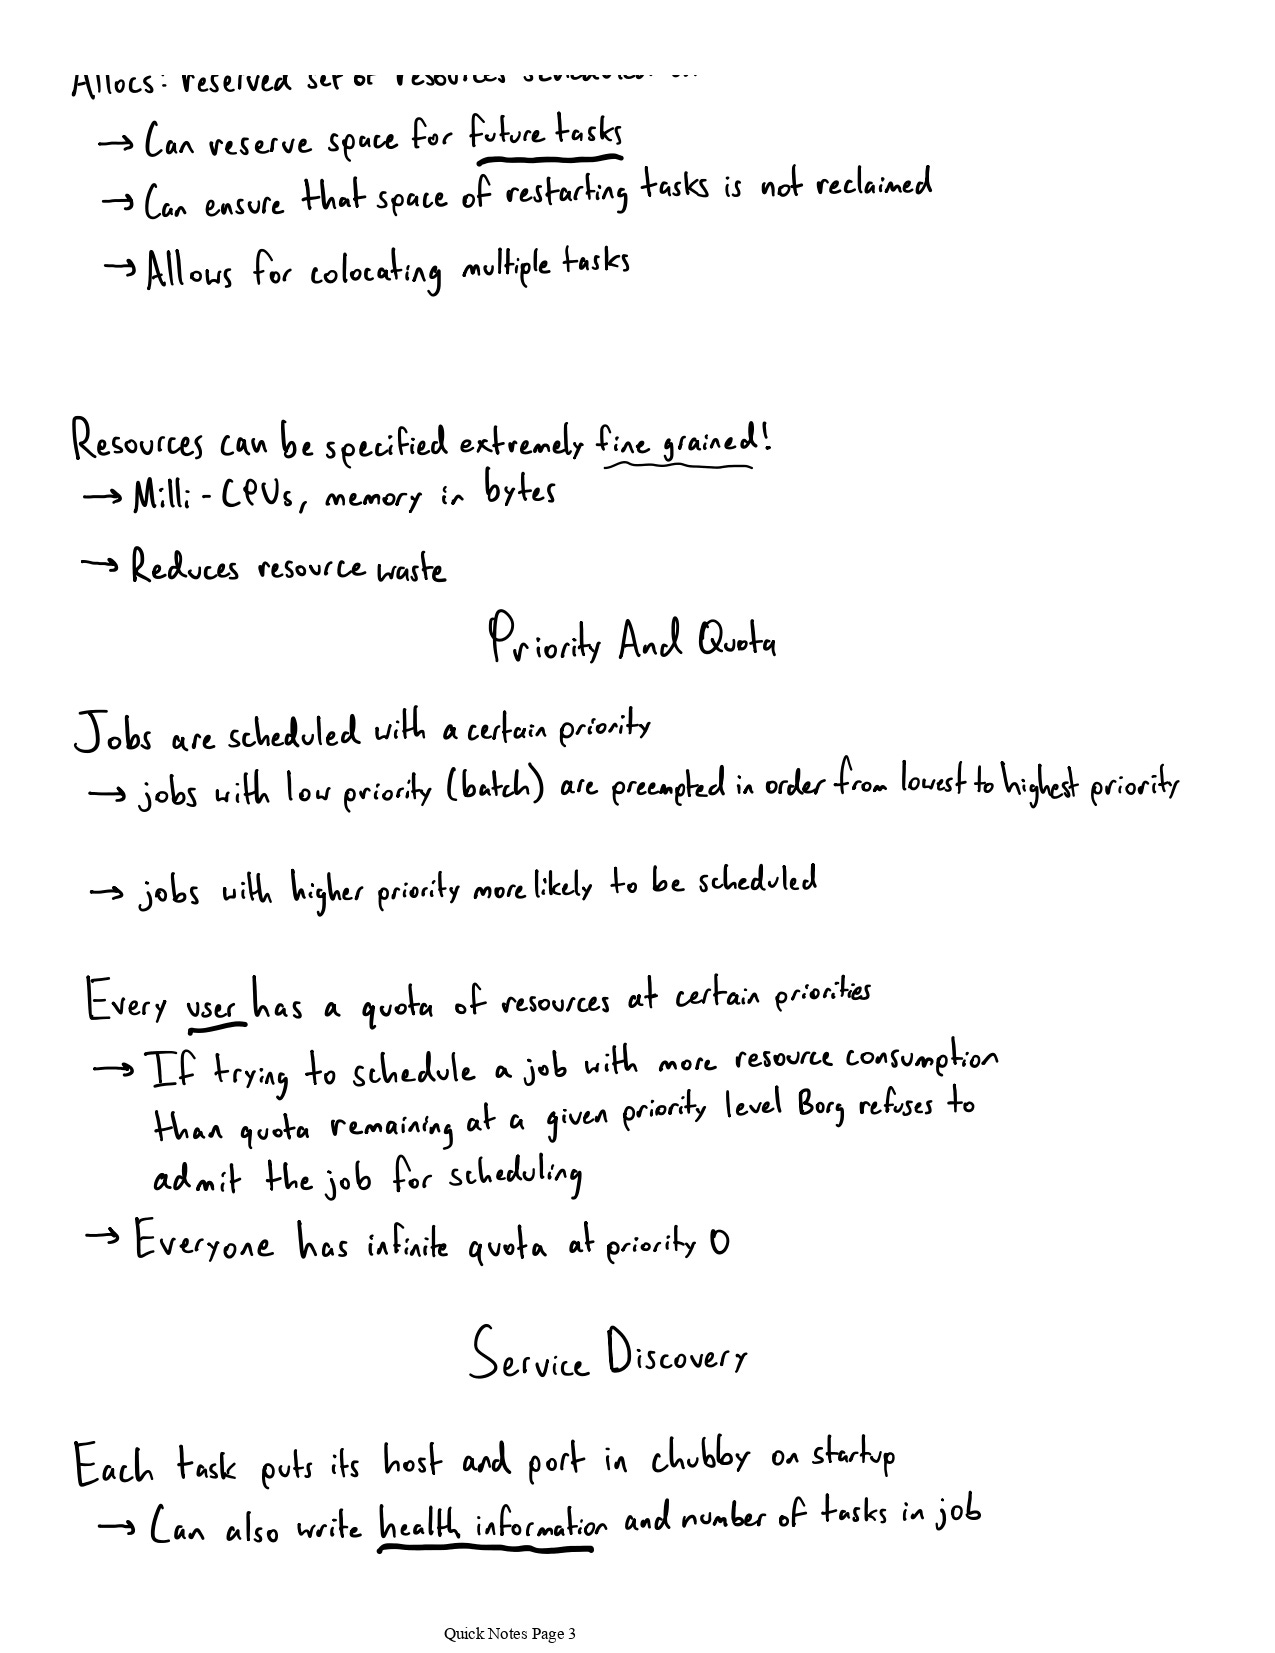 Allocs: reserved set of resources scheduled on
→ Can reserve space for future tasks
→ Can ensure that space of restarting tasks is not reclaimed
→ Allows for colocating multiple tasks
Resources can be specified extremely fine grained!
→ Milli-CPUs, memory in bytes
→ Reduces resource waste
Priority And Quota
Jobs are scheduled with a certain priority
→ jobs with low priority (batch) are preempted in order from lowest to highest priority
→ jobs with higher priority more likely to be scheduled
Every user has a quota of resources at certain priorities
→ If trying to schedule a job with more resource consumption
than quota remaining at a given priority level Borg refuses to
admit the job for scheduling
→ Everyone has infinite quota at priority 0
Service Discovery
Each task puts its host and port in chubby on startup
→ Can also write health information and number of tasks in job
Quick Notes Page 3